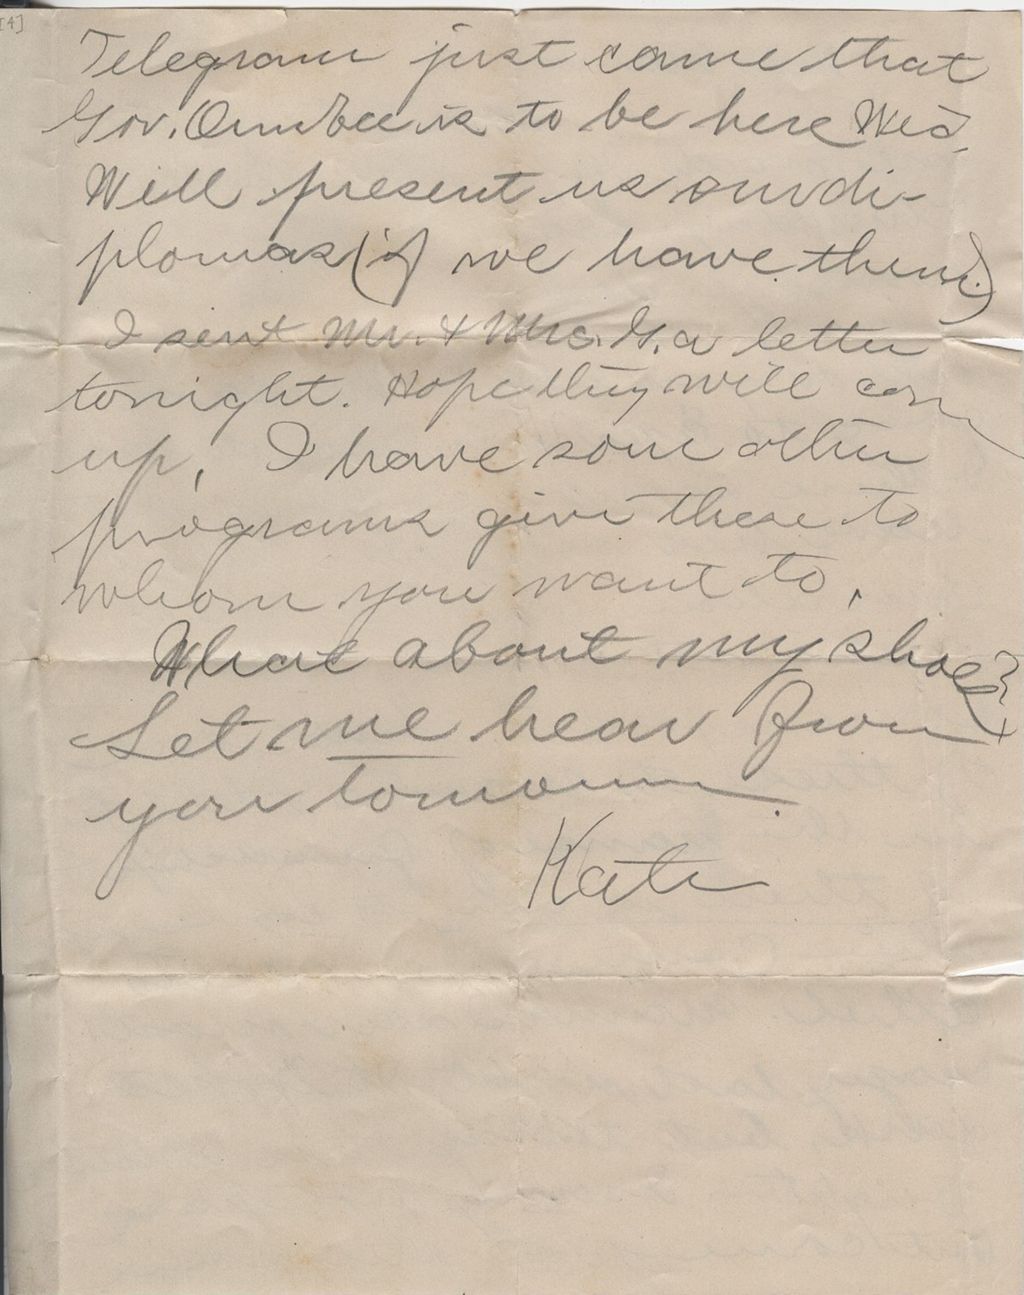 [4]
Telegram just came that
Gov. Durbee is to be here Wed.
Will present us our di-
plomas (if we have them.)
I sent Mr. & Mrs. G. a letter
tonight. Hope they will com
up, I have some other
programs give these to
whom you want to.
What about my shoes?
Let me hear from
you tomorrow.
Kate